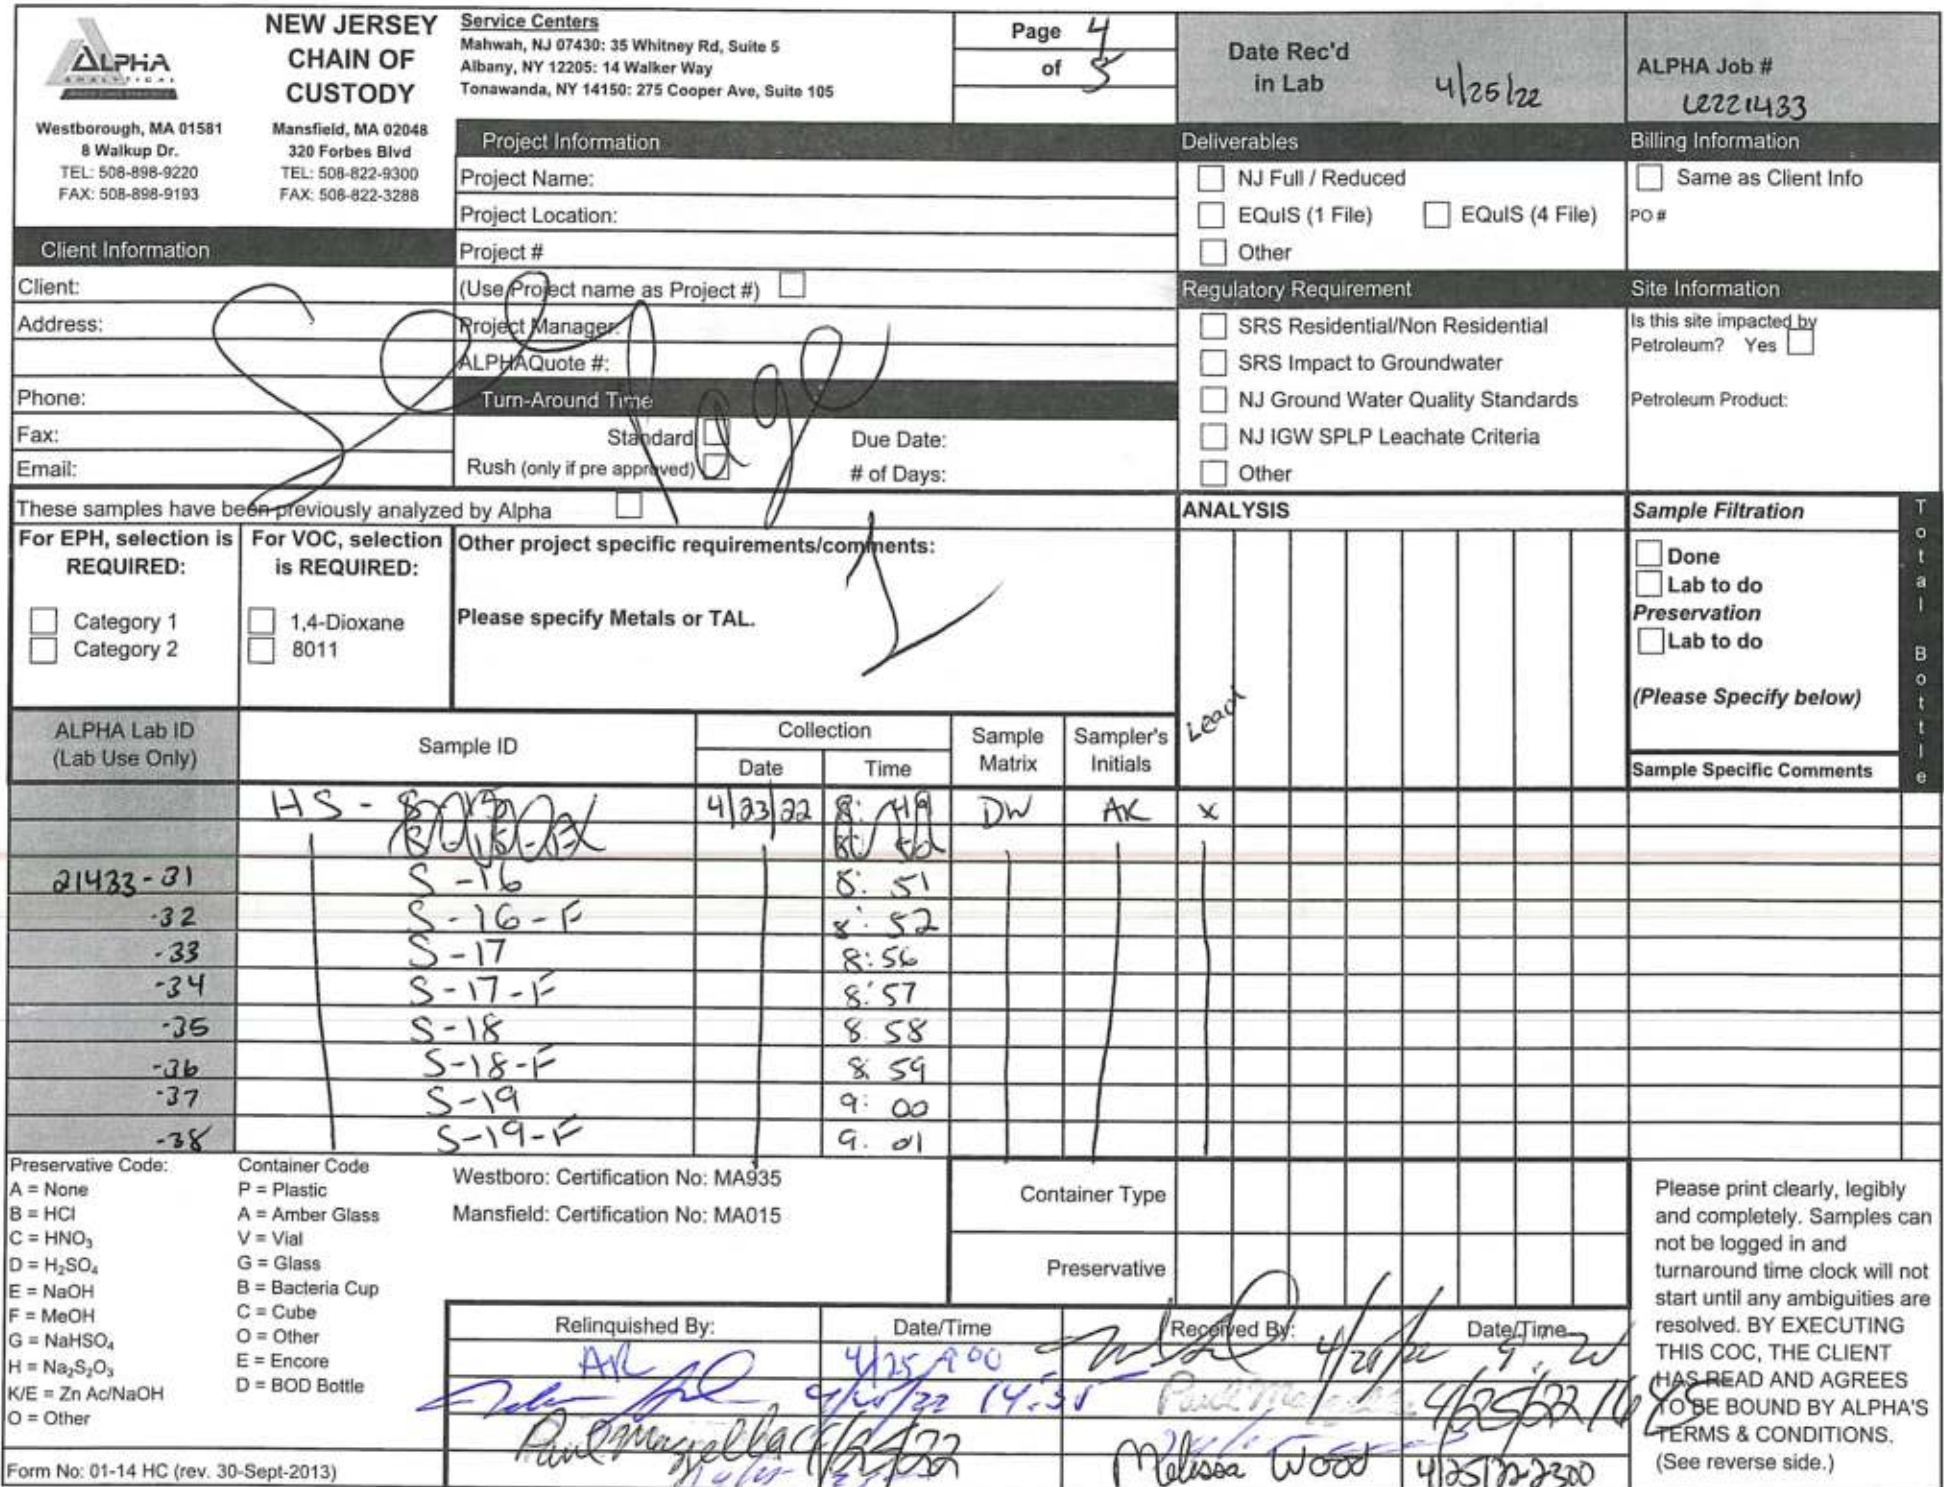 ALPHA
ANALYTICAL
Westborough, MA 01581
8 Walkup Dr.
TEL: 508-898-9220
FAX: 508-898-9193
NEW JERSEY
CHAIN OF
CUSTODY
Mansfield, MA 02048
320 Forbes Blvd
TEL: 508-822-9300
FAX: 508-822-3288
Service Centers
Mahwah, NJ 07430: 35 Whitney Rd, Suite 5
Albany, NY 12205: 14 Walker Way
Tonawanda, NY 14150: 275 Cooper Ave, Suite 105
Page 4
of 5
Date Rec'd
in Lab 4/25/22
ALPHA Job #
L2221433
Client Information
Client:
Address:
Phone:
Fax:
Email:
Project Information
Project Name:
Project Location:
Project #
(Use Project name as Project #)
Project Manager:
ALPHAQuote #:
Turn-Around Time
Standard Due Date:
Rush (only if pre approved) # of Days:
See Page 1
Deliverables
NJ Full / Reduced
EQuIS (1 File) EQuIS (4 File)
Other
Regulatory Requirement
SRS Residential/Non Residential
SRS Impact to Groundwater
NJ Ground Water Quality Standards
NJ IGW SPLP Leachate Criteria
Other
Billing Information
Same as Client Info
PO #
Site Information
Is this site impacted by
Petroleum? Yes
Petroleum Product:
These samples have been previously analyzed by Alpha
For EPH, selection is
REQUIRED:
Category 1
Category 2
For VOC, selection
is REQUIRED:
1,4-Dioxane
8011
Other project specific requirements/comments:
Please specify Metals or TAL.
ANALYSIS
Lead
Sample Filtration
Done
Lab to do
Preservation
Lab to do
(Please Specify below)
Sample Specific Comments
Total Bottle
ALPHA Lab ID
(Lab Use Only)
Sample ID
Collection
Date Time
Sample
Matrix
Sampler's
Initials
HS - 4/23/22 8:49 DW AK x
21433-31 S-16 8:51
-32 S-16-F 8:52
-33 S-17 8:56
-34 S-17-F 8:57
-35 S-18 8 58
-36 S-18-F 8 59
-37 S-19 9:00
-38 S-19-F 9.01
Preservative Code:
A = None
B = HCl
C = HNO₃
D = H₂SO₄
E = NaOH
F = MeOH
G = NaHSO₄
H = Na₂S₂O₃
K/E = Zn Ac/NaOH
O = Other
Container Code
P = Plastic
A = Amber Glass
V = Vial
G = Glass
B = Bacteria Cup
C = Cube
O = Other
E = Encore
D = BOD Bottle
Westboro: Certification No: MA935
Mansfield: Certification No: MA015
Container Type
Preservative
Relinquished By: Date/Time Received By: Date/Time
AK 4/25 900
4/25/22 14:35 4/25/22 1645
4/25/22 Melissa Wood 4/25/22 2300
Please print clearly, legibly
and completely. Samples can
not be logged in and
turnaround time clock will not
start until any ambiguities are
resolved. BY EXECUTING
THIS COC, THE CLIENT
HAS READ AND AGREES
TO BE BOUND BY ALPHA'S
TERMS & CONDITIONS.
(See reverse side.)
Form No: 01-14 HC (rev. 30-Sept-2013)